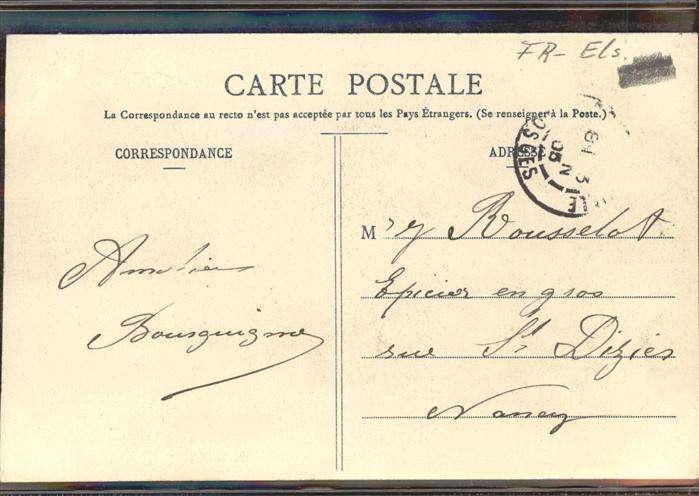 FR- Els.
CARTE POSTALE
La Correspondance au recto n'est pas acceptée par tous les Pays Étrangers. (Se renseigner à la Poste.)
CORRESPONDANCE
ADRESSE
SGES
05
M Rousselot
Epicier en gros
rue St Dizier
Nancy
Amitiés
Bourguignon